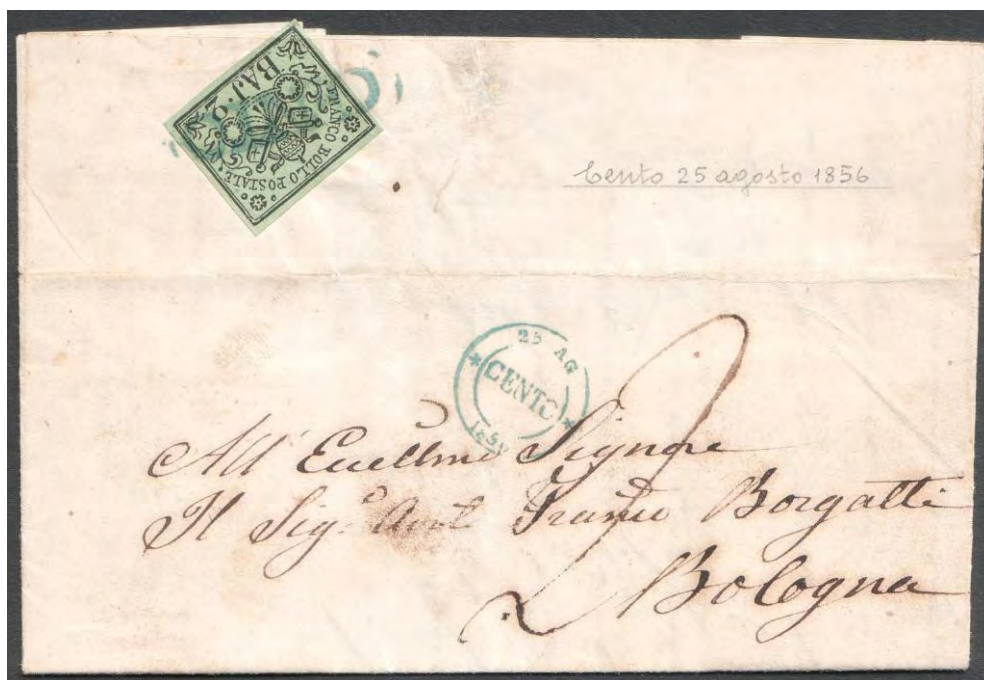 BAJ. 2
FRANCO BOLLO POSTALE
Cento 25 agosto 1856
25 AG
CENTO
All' Ecellmo Signore
Il Sig.e Avvt Franco Borgatti
Bologna